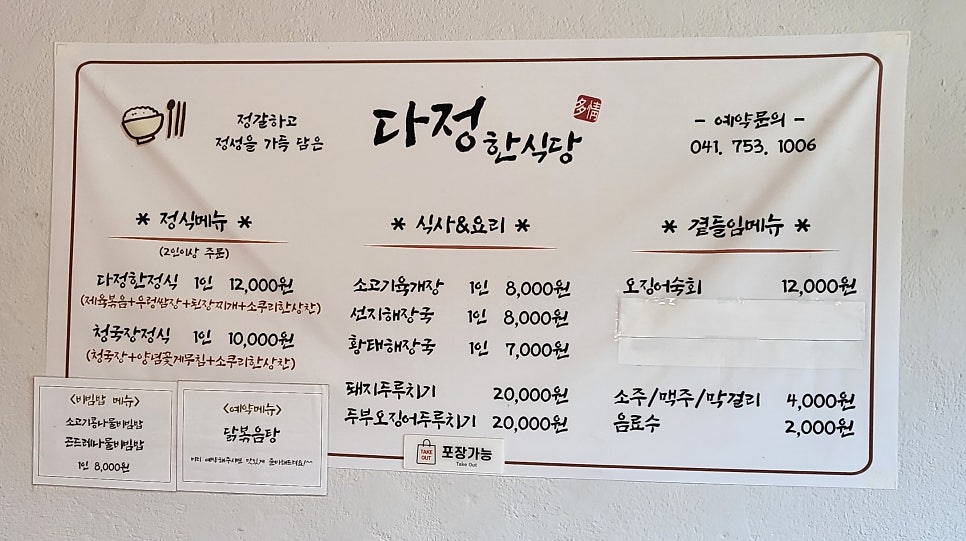 정갈하고
정성을 가득 담은
다정한식당
多情
- 예약문의 -
041. 753. 1006
* 정식메뉴 *
(2인이상 주문)
다정한정식 1인 12,000원
(제육볶음+우렁쌈장+된장찌개+소쿠리한상찬)
청국장정식 1인 10,000원
(청국장+양념꽃게무침+소쿠리한상찬)
* 식사&요리 *
소고기육개장 1인 8,000원
선지해장국 1인 8,000원
황태해장국 1인 7,000원
돼지두루치기 20,000원
두부오징어두루치기 20,000원
* 곁들임메뉴 *
오징어숙회 12,000원
소주/맥주/막걸리 4,000원
음료수 2,000원
<비빔밥 메뉴>
소고기콩나물비빔밥
곤드레나물비빔밥
1인 8,000원
<예약메뉴>
닭볶음탕
미리 예약해주시면 맛있게 준비해드려요!^^
TAKE OUT
포장가능
Take Out